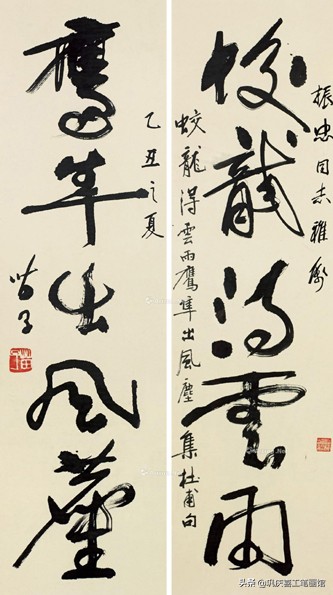 振忠同志雅屬
蛟龍得雲雨
蛟龍得雲雨鷹隼出風塵 集杜甫句
鷹隼出風塵
乙丑之夏
头条 @巩庆喜工笔画馆